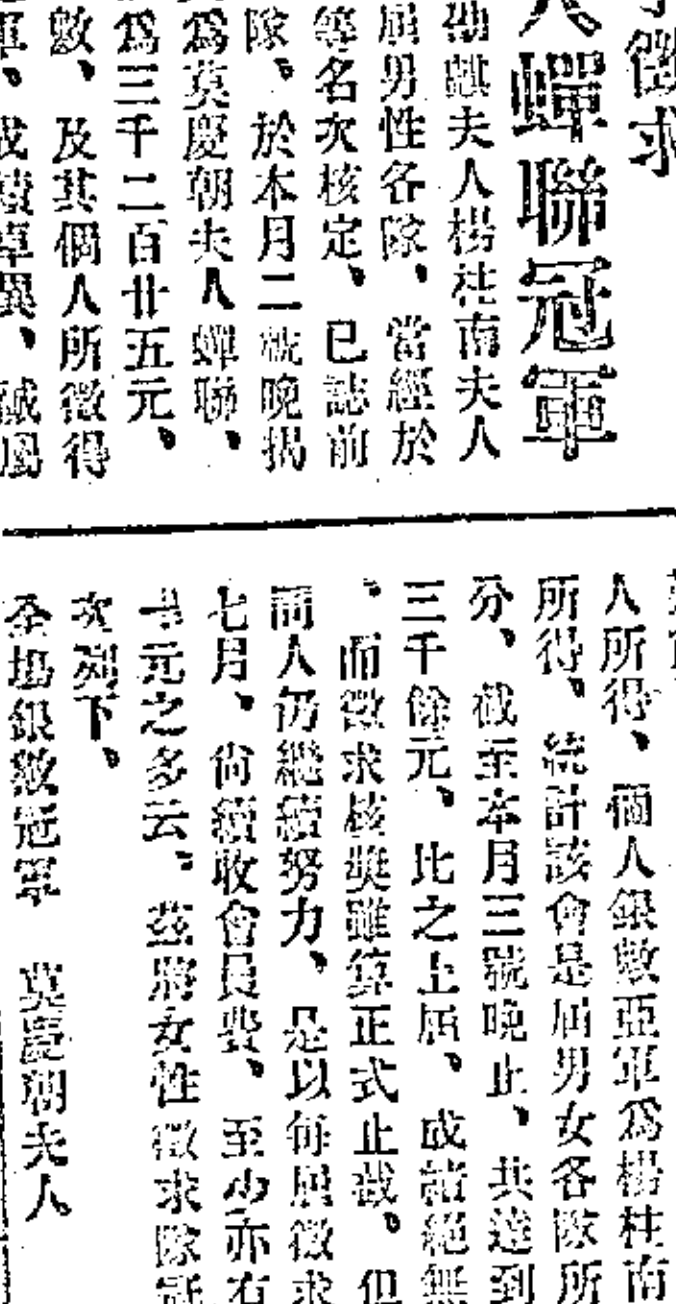 徵求
蟬聯冠軍
勛麒夫人楊桂南夫人
屆男性各隊、當經於
等名次核定、已誌前
隊、於本月二號晚揭
爲莫慶朝夫人蟬聯、
爲三千二百廿五元、
數、及其個人所徵得
軍、成績卓異、誠屬
人所得、個人銀數亞軍爲楊桂南
所得、統計該會是屆男女各隊所
分、截至本月三號晚止、共達到
三千餘元、比之上屆、成績絕無
、而徵求核奬雖算正式止截。但
同人仍繼續努力、是以每屆徵求
七月、尚續收會員費、至少亦有
元之多云。茲將女性徵求隊
次列下、
全塲銀數冠軍 莫慶朝夫人